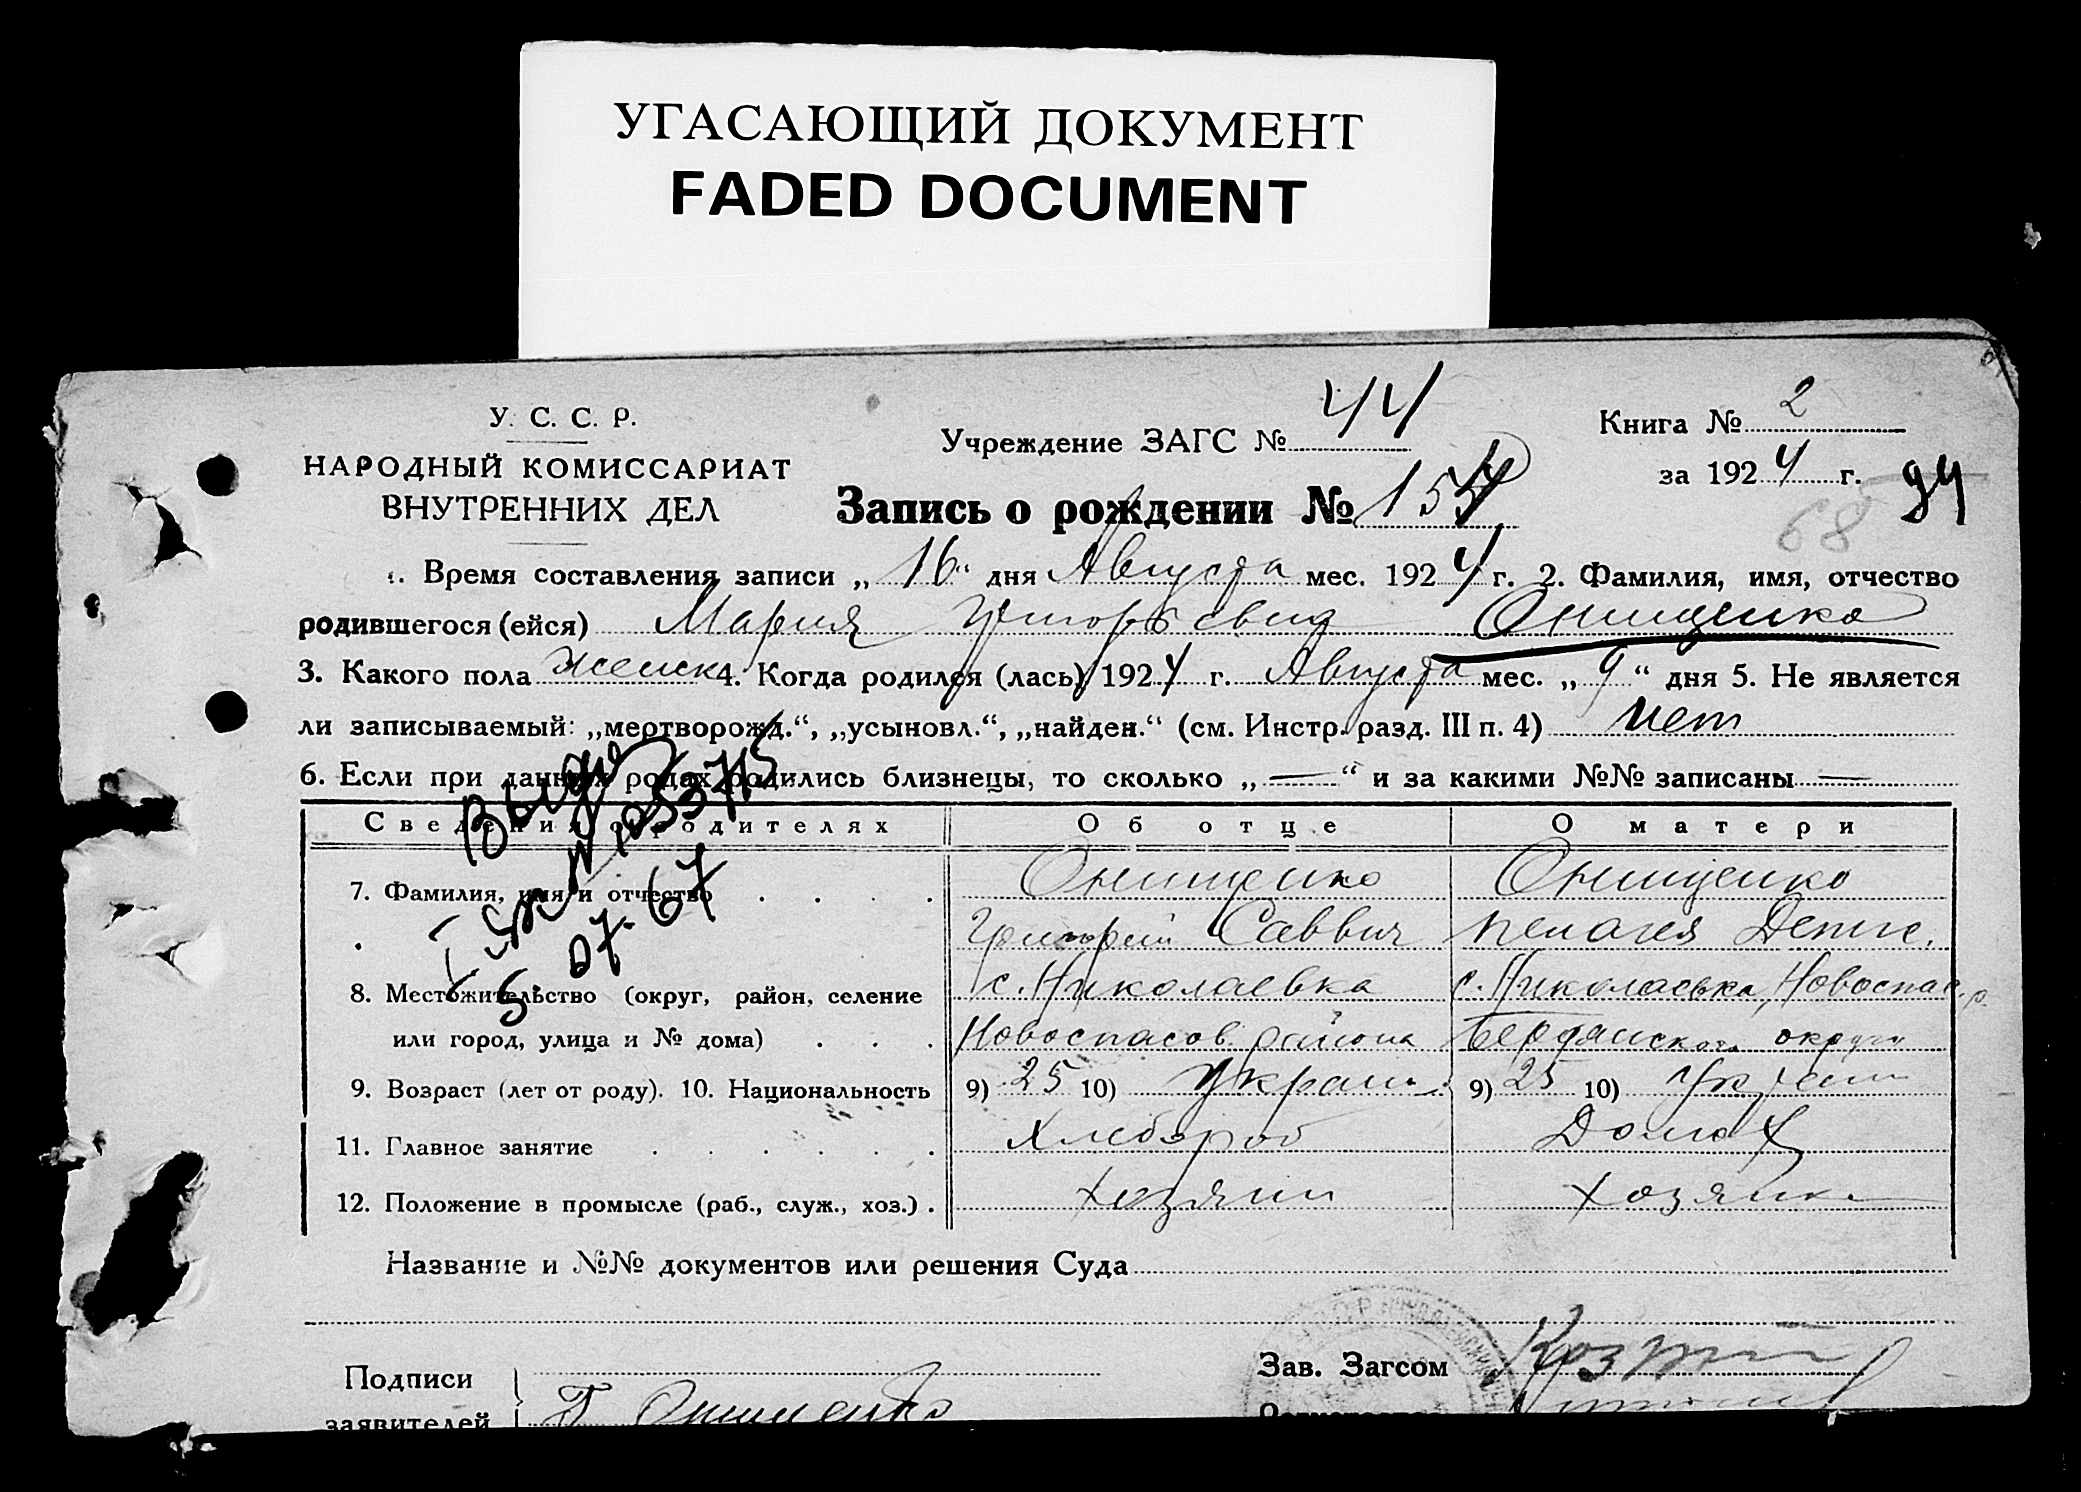 УГАСАЮЩИЙ ДОКУМЕНТ
FADED DOCUMENT
У. С. С. Р.
НАРОДНЫЙ КОМИССАРИАТ
ВНУТРЕННИХ ДЕЛ
Учреждение ЗАГС № 44
Книга № 2
за 1924 г. 94
68
Запись о рождении № 154
1. Время составления записи „16“ дня Августа мес. 1924 г. 2. Фамилия, имя, отчество
родившегося (ейся) Мария Григорьевна Онищенко
3. Какого пола женск 4. Когда родился (лась) 1924 г. Августа мес. „9“ дня 5. Не является
ли записываемый: „мертворожд.“, „усыновл.“, „найден.“ (см. Инстр. разд. III п. 4) нет
6. Если при данных родах родились близнецы, то сколько „—“ и за какими №№ записаны —
Сведения о родителях Об отце О матери
7. Фамилия, имя и отчество . . . . Онищенко Онищенко
Григорий Саввич Пелагея Денис.
8. Местожительство (округ, район, селение с. Николаевка с. Николаевка, Новоспас. р.
или город, улица и № дома) . . . Новоспасов. района Бердянского округа
9. Возраст (лет от роду). 10. Национальность 9) 25 10) Украин 9) 25 10) Украин
11. Главное занятие . . . . . . Хлебороб Домох
12. Положение в промысле (раб., служ., хоз.) . хозяин хозяйка
5. 07. 67
Название и №№ документов или решения Суда
Подписи
заявителей Г Онищенко
Зав. Загсом